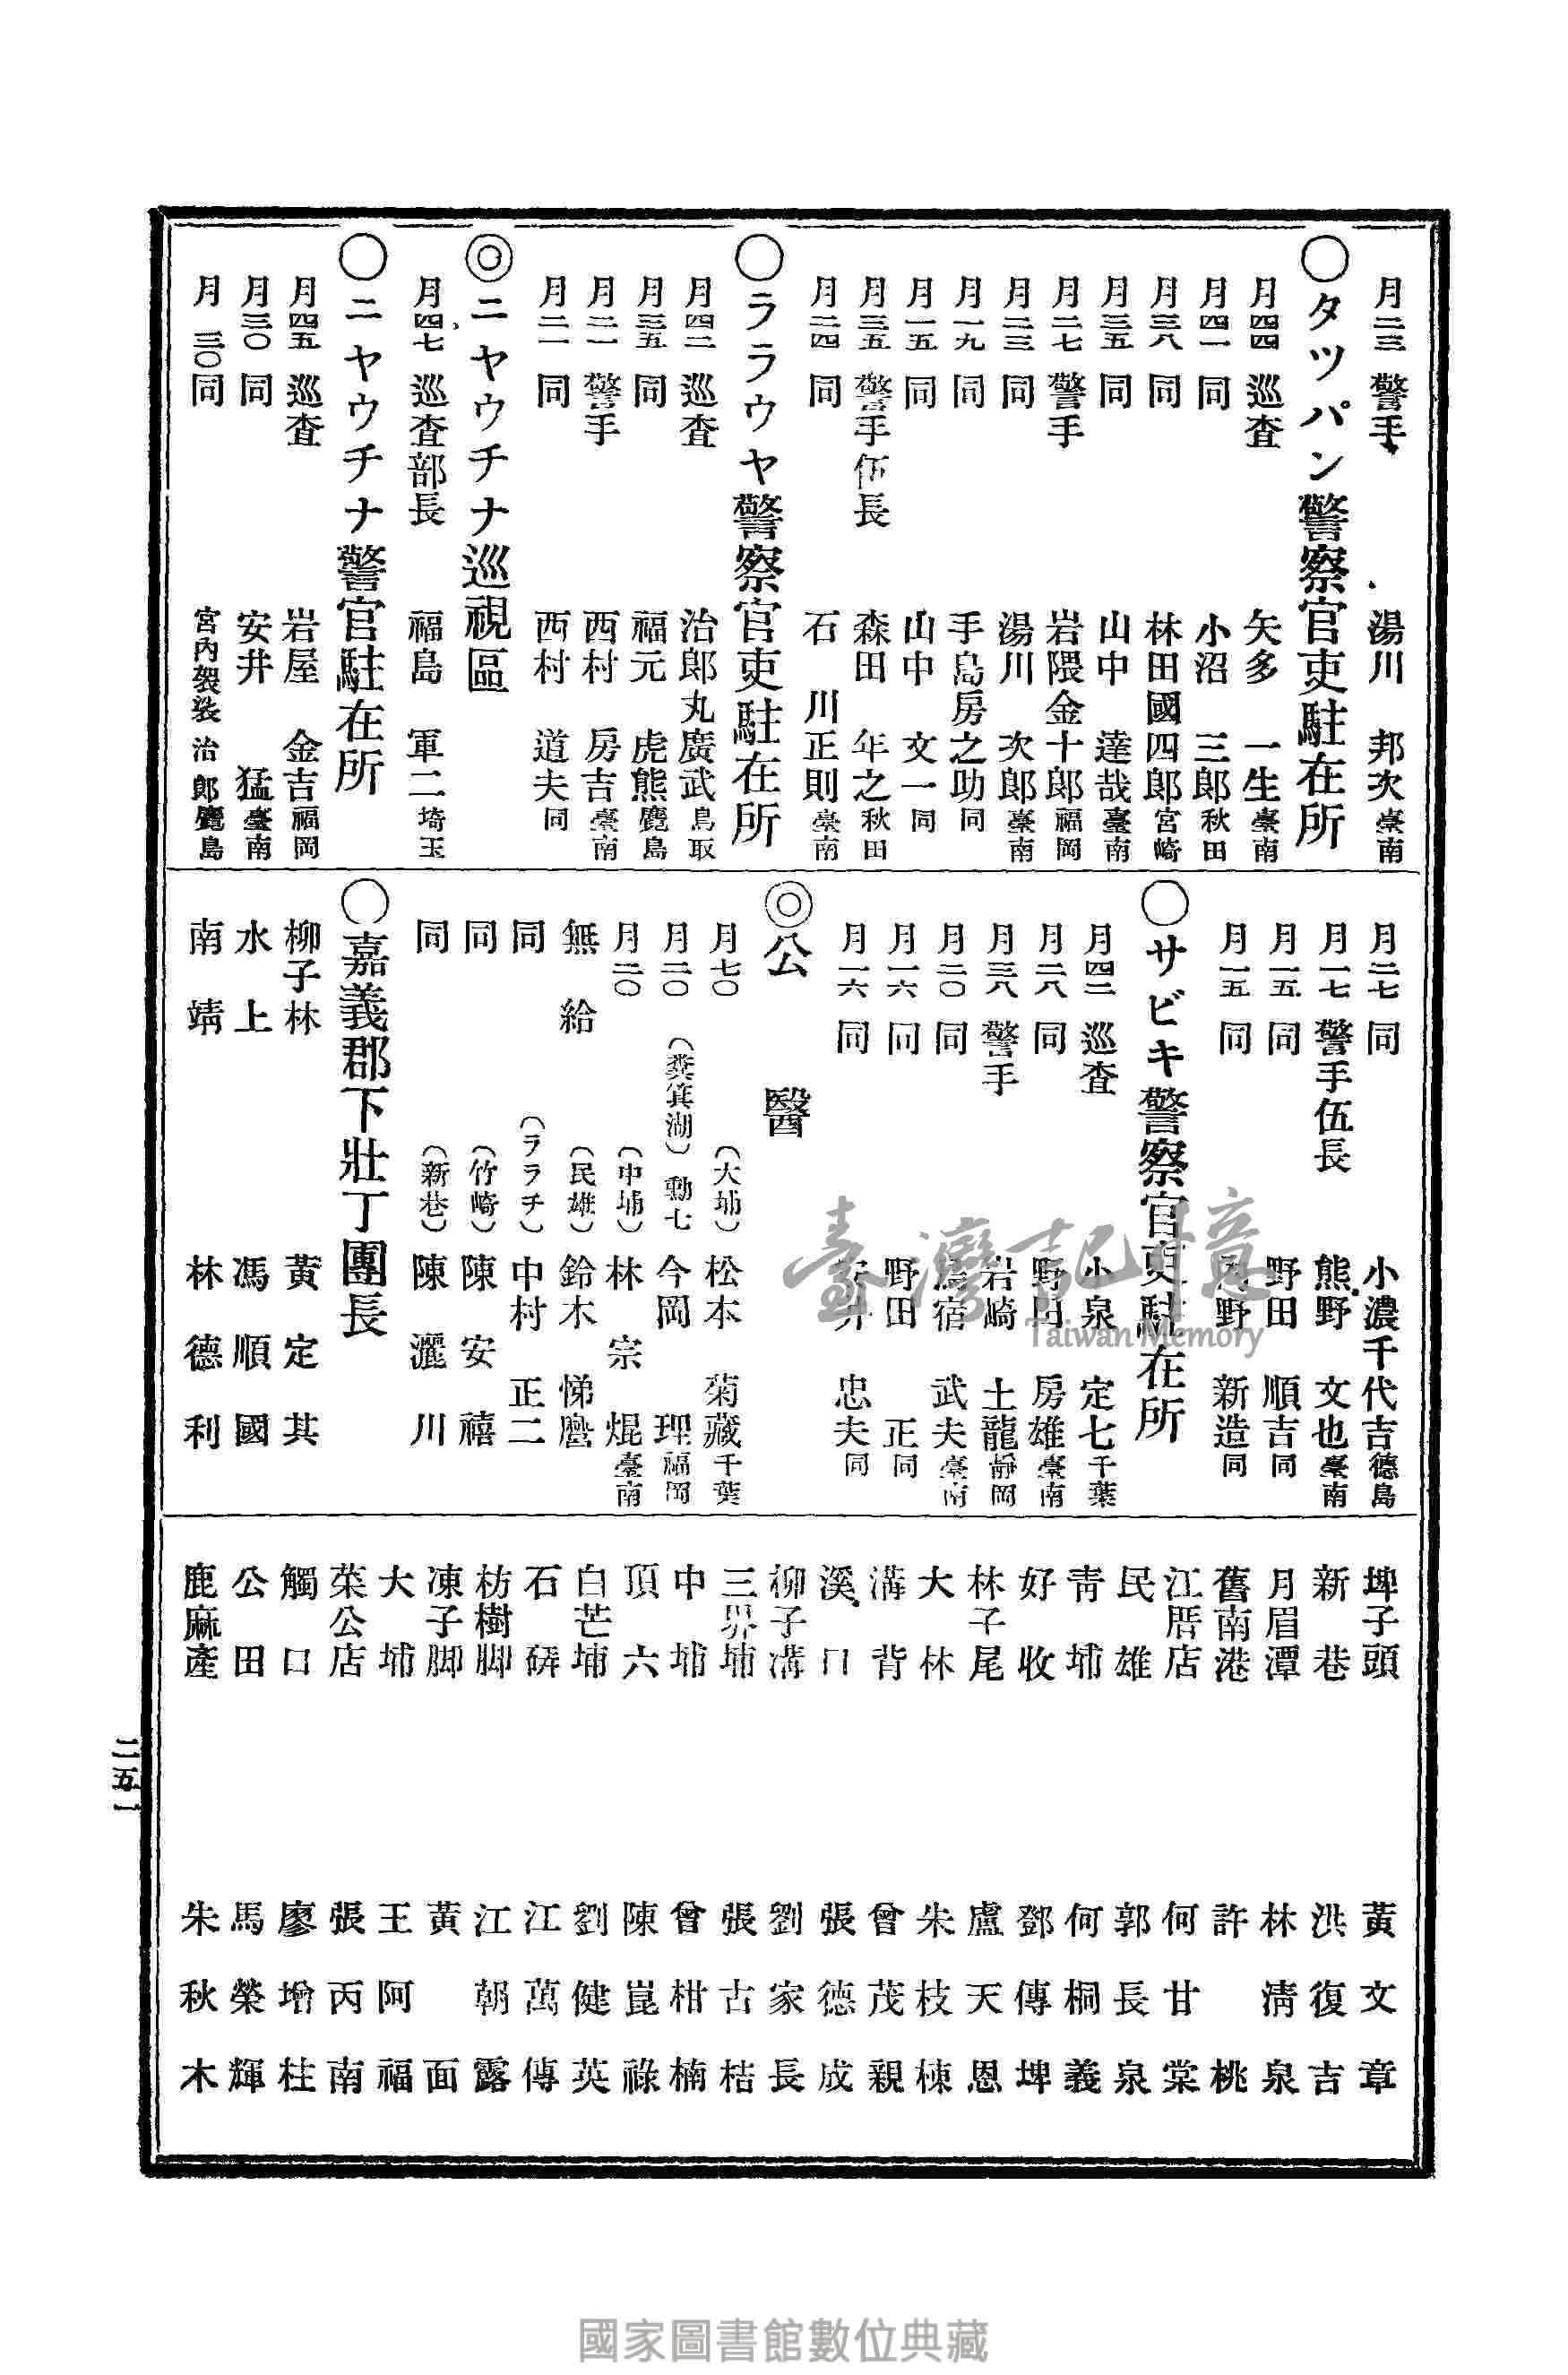 月二三 警手 湯川 邦次 臺南
○タツパン警察官吏駐在所
月四四 巡査 矢多 一生 臺南
月四一 同 小沼 三郎 秋田
月三八 同 林田國四郎 宮崎
月三五 同 山中 達哉 臺南
月二七 警手 岩隈金十郎 福岡
月二三 同 湯川 次郎 臺南
月一九 同 手島房之助 同
月一五 同 山中 文一 同
月三五 警手伍長 森田 年之 秋田
月二四 同 石川正則 臺南
○ララウヤ警察官吏駐在所
月四二 巡査 治郎丸廣武 鳥取
月三五 同 福元 虎熊 鹿島
月二一 警手 西村 房吉 臺南
月二一 同 西村 道夫 同
◎ニヤウチナ巡視區
月四七 巡査部長 福島 軍二 埼玉
○ニヤウチナ警官駐在所
月四五 巡査 岩屋 金吉 福岡
月三〇 同 安井 猛 臺南
月三〇 同 宮内袈裟治郎 鹿島
月二七 同 小濃千代吉 德島
月一七 警手伍長 熊野 文也 臺南
月一五 同 野田 順吉 同
月一五 同 野 新造 同
○サビキ警察官吏駐在所
月四二 巡査 小泉 定七 千葉
月二八 同 野田 房雄 臺南
月三八 警手 岩崎 土龍 靜岡
月二〇 同 宿 武夫 臺南
月一六 同 野田 正 同
月一六 同 安井 忠夫 同
◎公醫
月七〇 (大埔) 松本 菊藏 千葉
月二〇 (糞箕湖) 勳七 今岡 理 福岡
月二〇 (中埔) 林 宗焜 臺南
無給 (民雄) 鈴木 悌麿
同 (ララチ) 中村 正二
同 (竹崎) 陳安禧
同 (新巷) 陳灑川
○嘉義郡下壯丁團長
柳子林 黃定其
水上 馮順國
南靖 林德利
埤子頭 黃文章
新巷 洪復吉
月眉潭 林清泉
舊南港 許桃
江厝店 何甘棠
民雄 郭長泉
靑埔 何桐義
好收 鄧傳埤
林子尾 盧天恩
大林 朱枝棟
溝背 曾茂親
溪口 張德成
柳子溝 劉家長
三界埔 張古桔
中埔 曾柑楠
頂六 陳崑祿
白芒埔 劉健英
石硦 江萬傳
枋樹脚 江朝露
凍子脚 黃面
大埔 王阿福
菜公店 張丙南
觸口 廖增柱
公田 馬榮輝
鹿麻產 朱秋木
二五一
臺灣記憶
Taiwan Memory
國家圖書館數位典藏